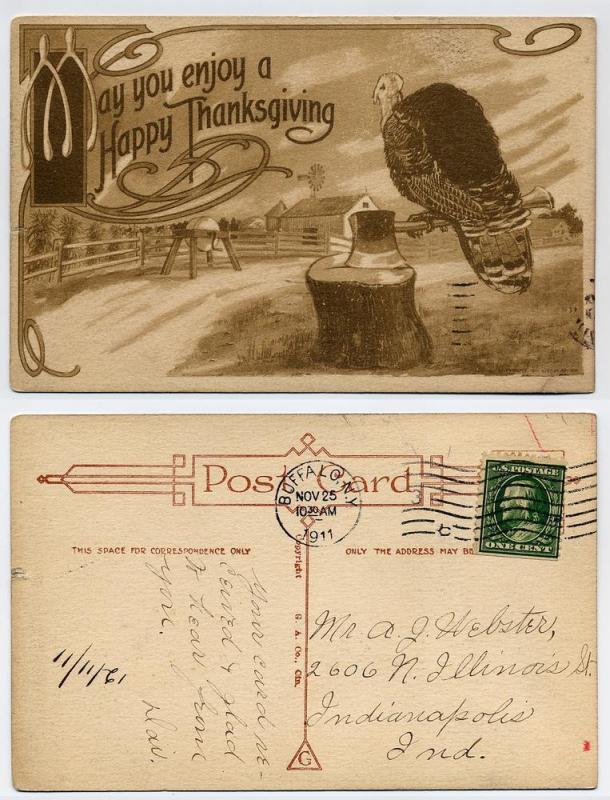 May you enjoy a
Happy Thanksgiving
Post Card
BUFFALO, N.Y.
NOV 25
10 30 AM
1911
3
C
U.S. POSTAGE
ONE CENT
THIS SPACE FOR CORRESPONDENCE ONLY
ONLY THE ADDRESS MAY BE
Copyright G. A. Co., Cin.
G
Your card re-
ceived & glad
to hear from
you.
Dav.
11/11/61
Mr A. J. Webster,
2606 N. Illinois St.
Indianapolis
Ind.